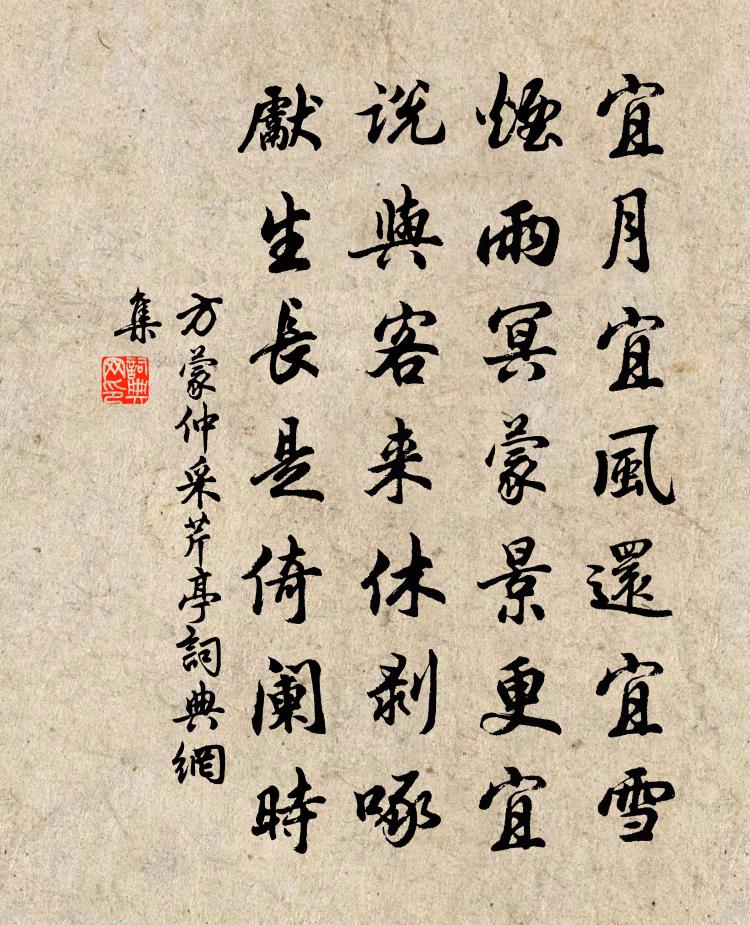 宜月宜風還宜雪
煙雨冥蒙景更宜
説與客来休剥啄
獻生長是倚闌時
方蒙仲采芹亭詞典網
集
詞典
网印